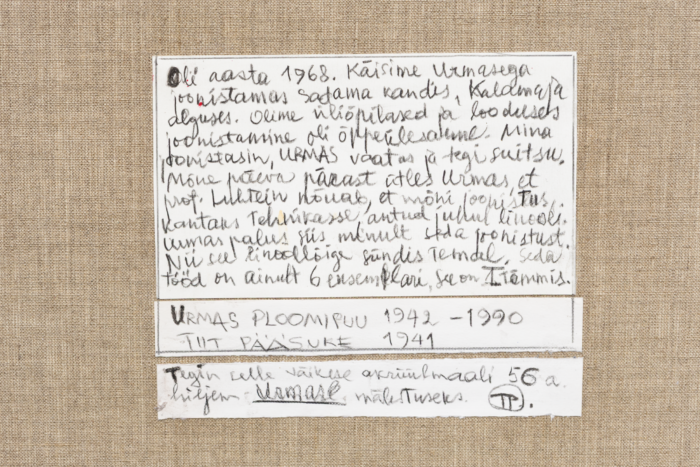 Oli aasta 1968. Käisime Urmasega
joonistamas Sadama kandis, Kalamaja
alguses. Olime üliõpilased ja looduses
joonistamine oli õppeülesanne. Mina
joonistasin, URMAS vaatas ja tegi suitsu.
Mõne päeva pärast ütles Urmas, et
prof. Luhtein nõuab, et mõni joonistus
kantaks Tehnikasse, antud juhul linooli.
Urmas palus siis minult seda joonistust.
Nii see linoollõige sündis Temal. Seda
tööd on ainult 6 eksemplari, see on I tõmmis.
URMAS PLOOMIPUU 1942 - 1990
TIIT PÄÄSUKE 1941
Tegin selle väikese akrüülmaali 56 a.
hiljem Urmase mälestuseks. TP.